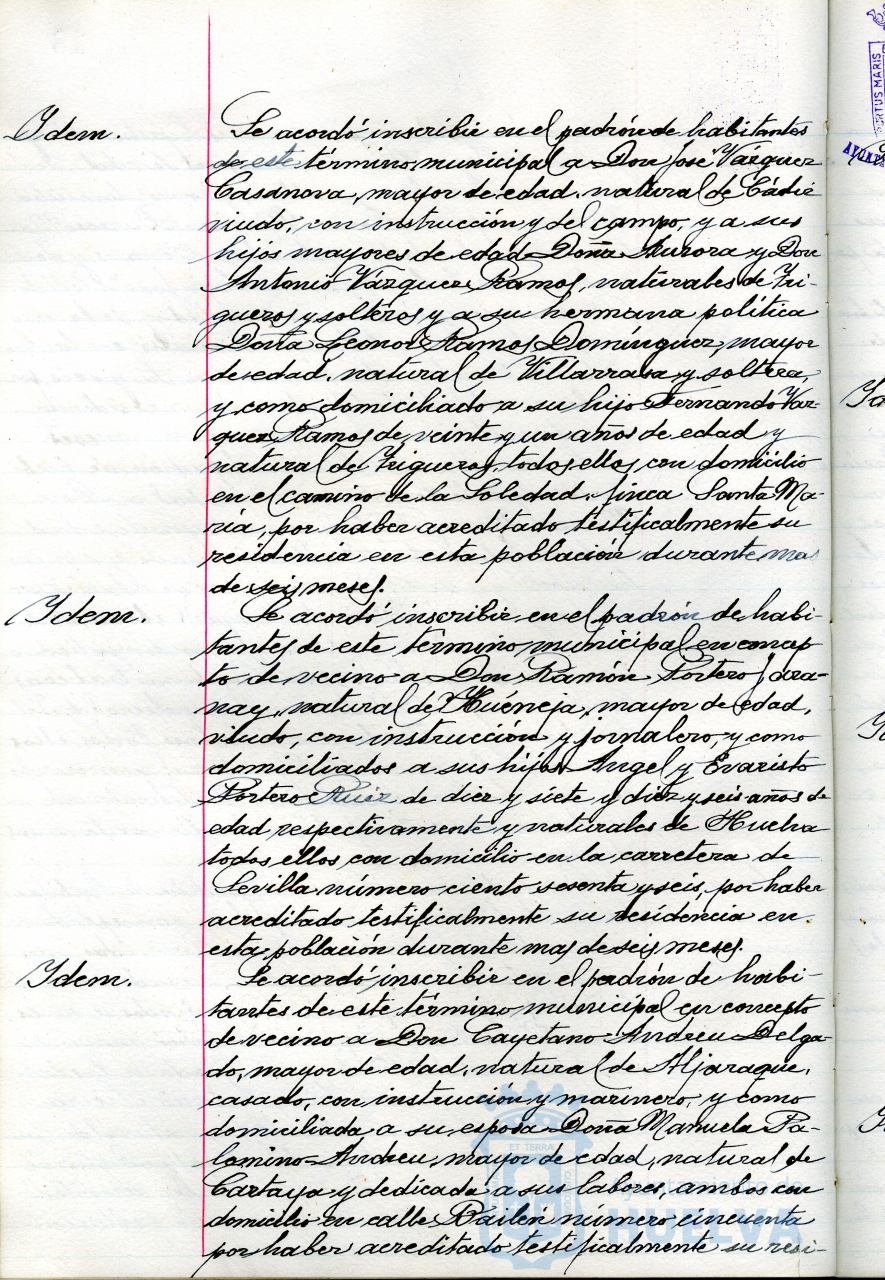 Idem.
Se acordó inscribir en el padrón de habitantes
de este término municipal a Don José Vázquez
Casanova, mayor de edad, natural de Cádiz
viudo, con instrucción y del campo, y a sus
hijos mayores de edad Doña Aurora y Don
Antonio Vázquez Ramos, naturales de Tri-
gueros y solteros y a su hermana política
Doña Leonor Ramos Domínguez, mayor
de edad, natural de Villarrasa y soltera,
y como domiciliado a su hijo Fernando Váz-
quez Ramos de veinte y un años de edad y
natural de Trigueros, todos ellos con domicilio
en el camino de la Soledad, finca Santa Ma-
ría, por haber acreditado testificalmente su
residencia en esta población durante mas
de seis meses.
Idem.
Se acordó inscribir en el padrón de habi-
tantes de este término municipal en concep
to de vecino a Don Ramón Portero Jara-
nay, natural de Huéneja, mayor de edad,
viudo, con instrucción y jornalero, y como
domiciliados a sus hijos Angel y Evaristo
Portero Ruiz de diez y siete y diez y seis años de
edad respectivamente y naturales de Huelva
todos ellos con domicilio en la carretera de
Sevilla número ciento sesenta y seis, por haber
acreditado testificalmente su residencia en
esta población durante mas de seis meses.
Idem.
Se acordó inscribir en el padrón de habi-
tantes de este término municipal en concepto
de vecino a Don Cayetano Andreu Delga-
do, mayor de edad, natural de Aljaraque,
casado, con instrucción y marinero, y como
domiciliada a su esposa Doña Manuela Pa-
lomino Andreu, mayor de edad, natural de
Cartaya y dedicada a sus labores, ambos con
domicilio en calle Bailén número cincuenta
por haber acreditado testificalmente su resi-
PORTUS MARIS
ET TERRAE
Ayuntamiento de
HUELVA